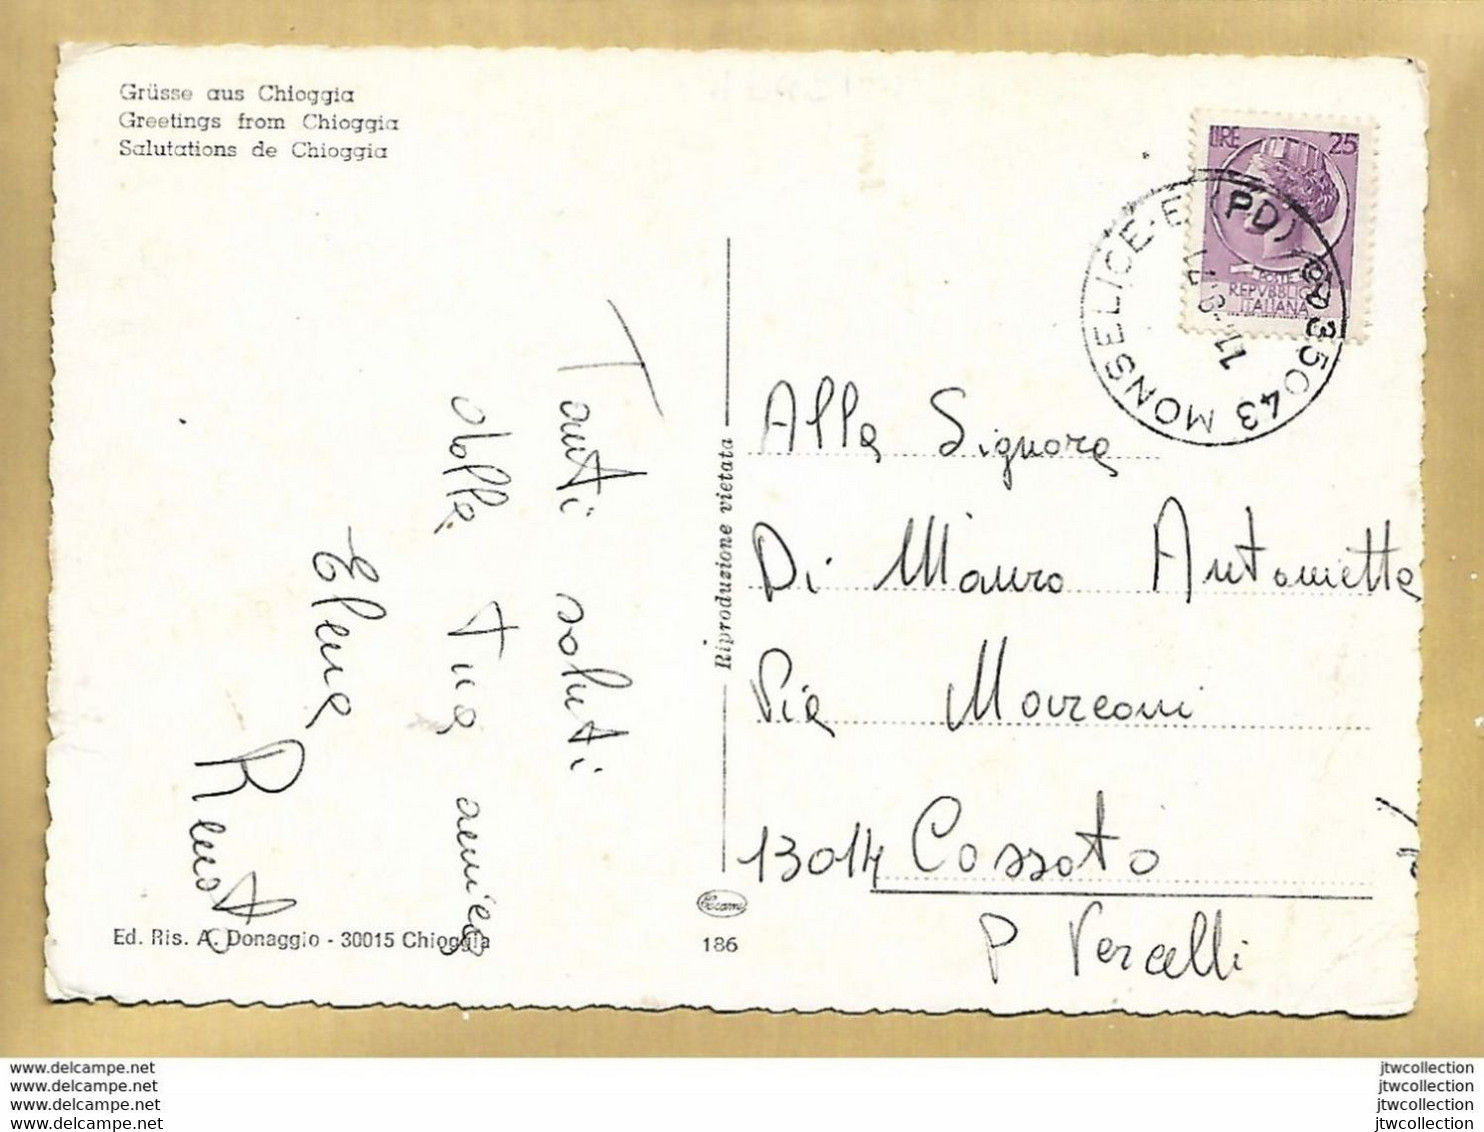 Grüsse aus Chioggia
Greetings from Chioggia
Salutations de Chioggia
LIRE 25
POSTE
REPVBBLICA
ITALIANA
35043 MONSELICE-E (PD)
Tanti saluti
dalla tua amica
Elena
Renato
Riproduzione vietata
Alla Signora
Di Mauro Antonietta
Via Marconi
13014 Cossato
P Vercelli
Ed. Ris. A. Donaggio - 30015 Chioggia
186
www.delcampe.net
www.delcampe.net
www.delcampe.net
www.delcampe.net
jtwcollection
jtwcollection
jtwcollection
jtwcollection